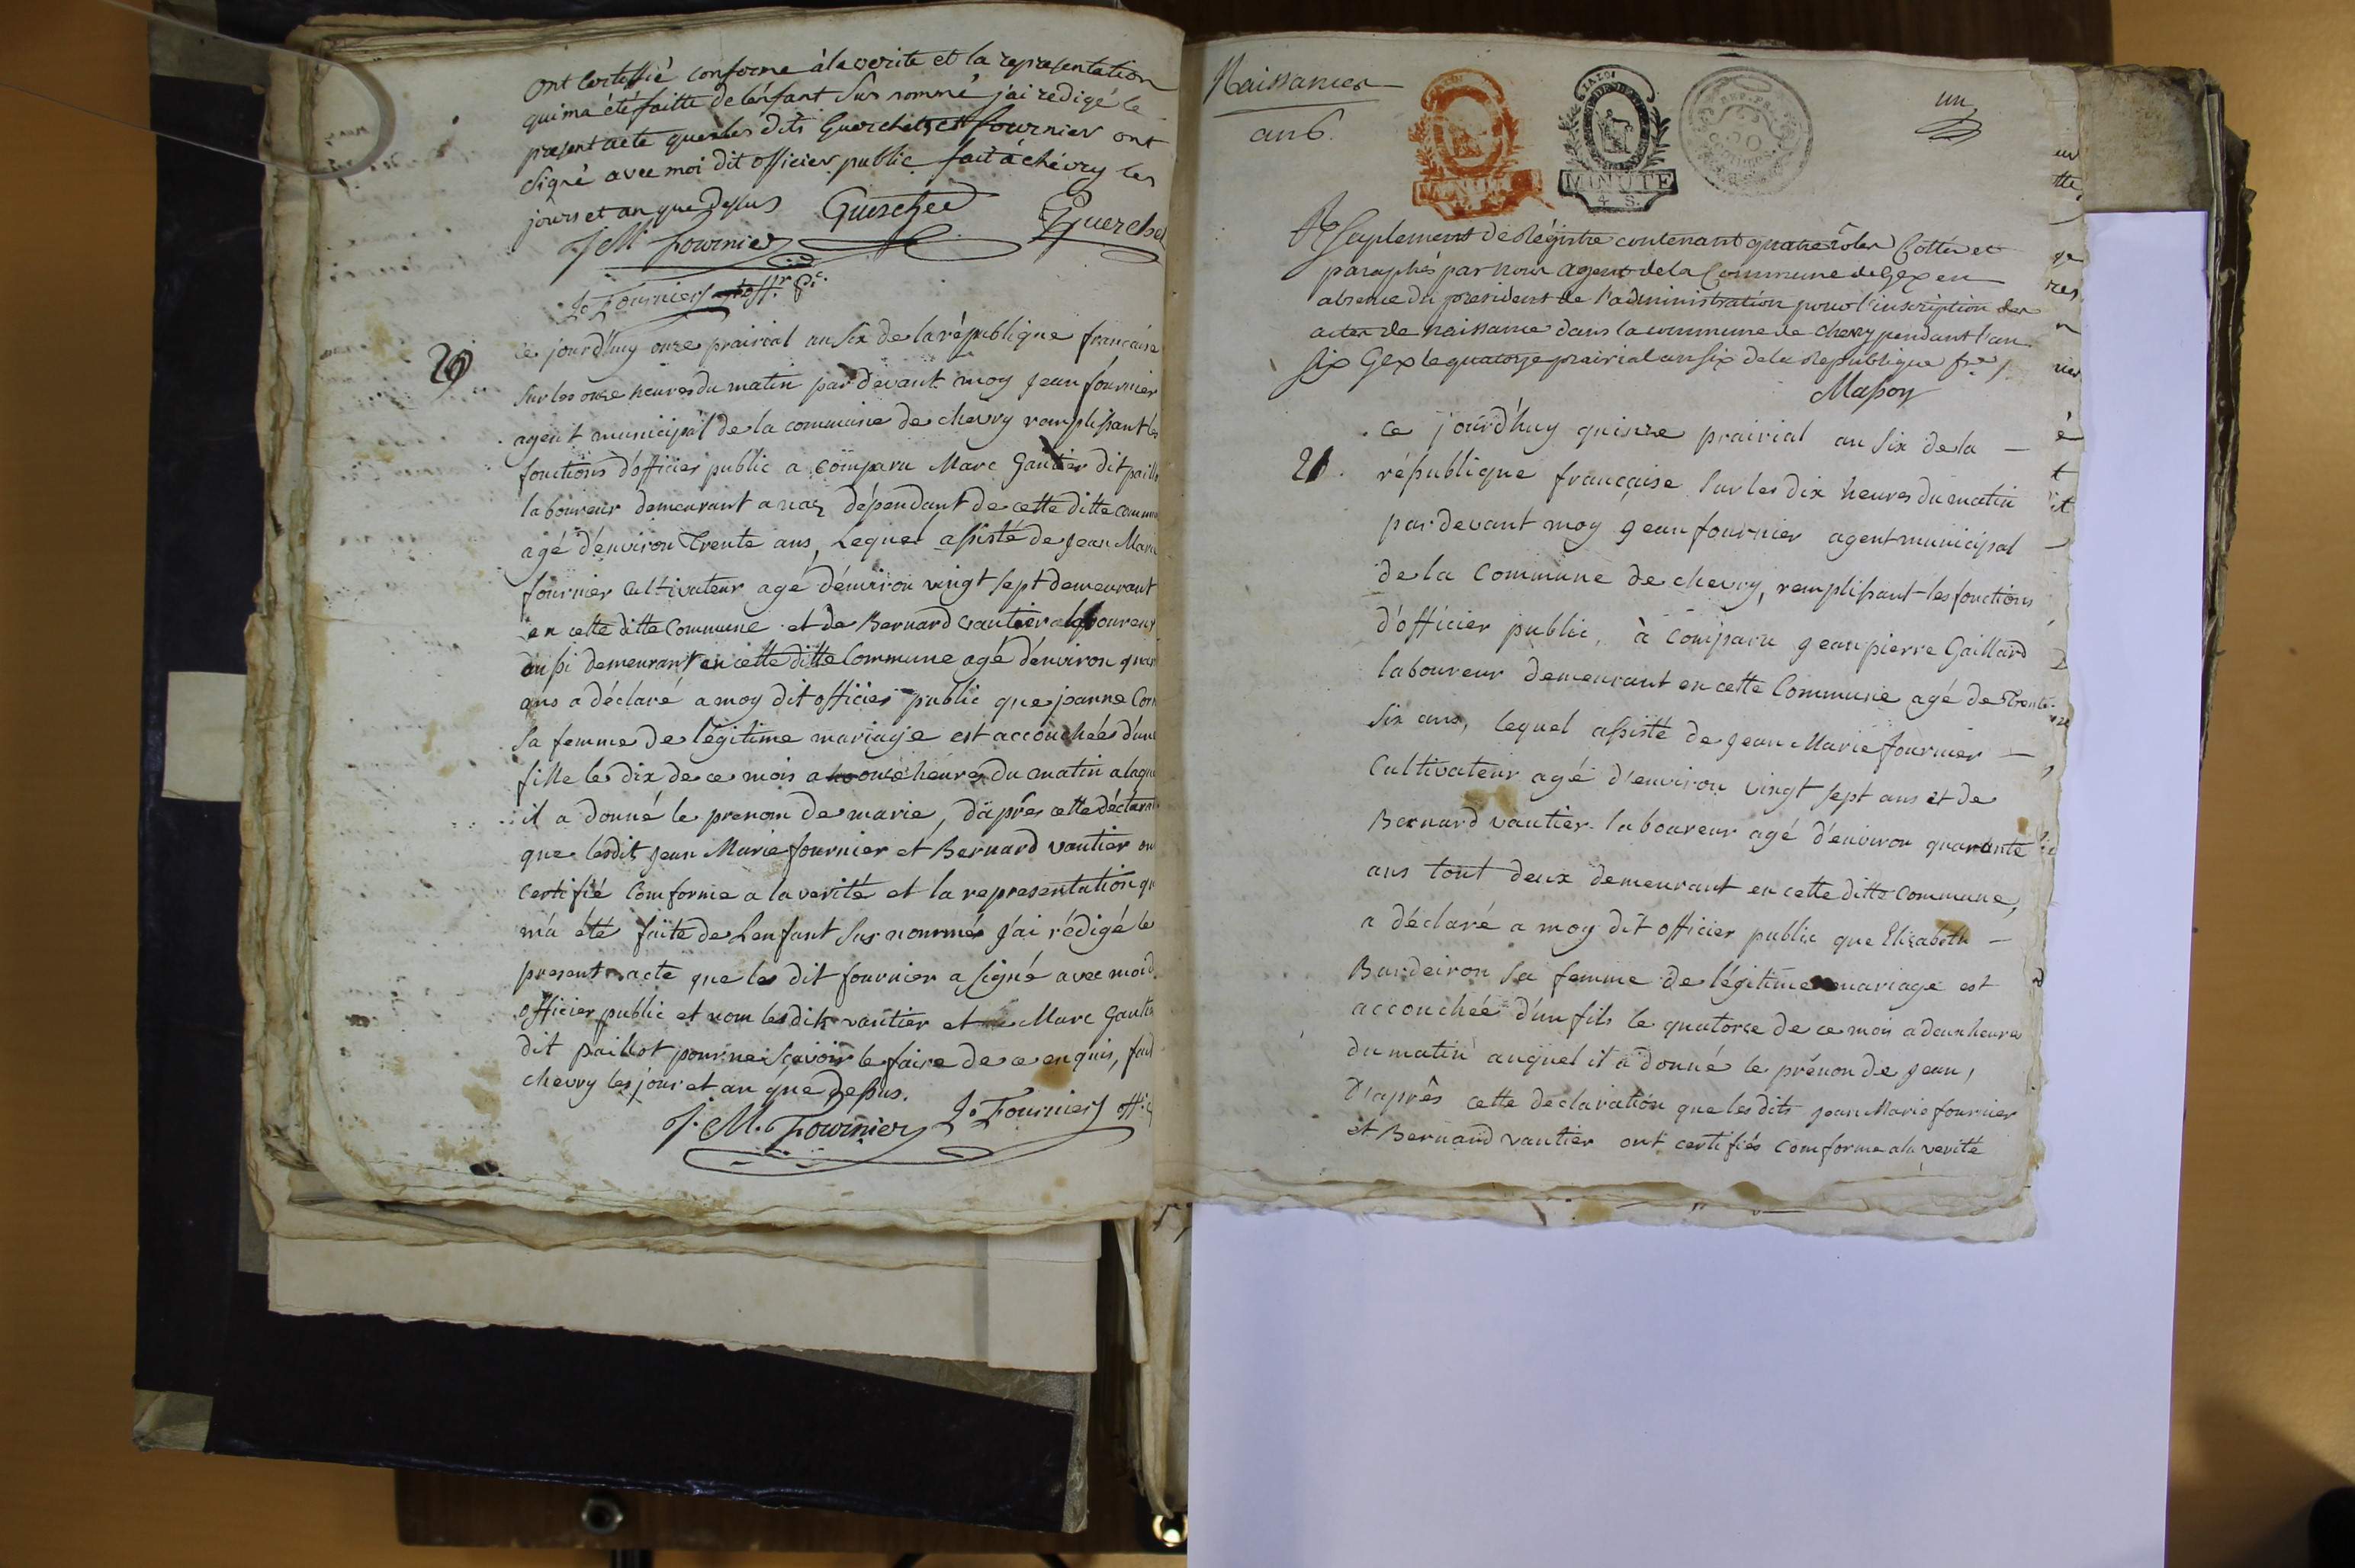 ont certiffié conforme à la verite et la representation
qui ma été faitte de lenfant sus nommé j'ai redigé le
present acte que les dits Guerchet et fournier ont
signé avec moi dit officier public fait à chevry les
jours et an que dessus Guerchet Guerchet
J M Fournier
J. Fournier off.r P.c
20
ce jourd'huy onze prairial an six de la république française
sur les onze heures du matin par devant moy jean fournier
agent municipal de la commune de chevry remplissant les
fonctions d'officier public a comparu Marc Gautier dit paill
laboureur demeurant a naz dépendant de cette ditte comm
agé d'environ trente ans, Lequel assisté de jean Marie
fournier cultivateur agé d'environ vingt sept demeurant
en cette ditte Commune et de Bernard vautier laboureur
aussi demeurant en cette ditte Commune agé d'environ quar
ans a déclaré a moy dit officier public que jeanne
sa femme de légitime mariage est accouchée d'une
fille le dix de ce mois a onze heures du matin a laque
il a donné le prenom de marie, d'après cette déclarat
que lesdits jean Marie fournier et Bernard vautier on
certifié comforme a la verité et la representation qu
m'a été faite de Lenfant sus nommé j'ai rédigé le
present acte que les dit fournier a signé avec moi d
officier public et nom lesdits vautier et Marc Gautie
dit paillot pour ne sçavoir le faire de ce enquis, fait
chevry les jour et an que dessus.
J. M. Fournier J. Fournier off.
Naissances
an 6.
un
MINUTE
MINUTE
4 S.
Suplement de Régistre contenant quatre rôles Cottés et
paraphés par nous agent de la Commune de Gex en
absence du president de l'administration pour l'inscription des
actes de naissance dans la commune de chevry pendant l'an
six Gex le quatorze prairial an six de la Republique fse
Masson
21.
ce jourd'huy quinze prairial an six de la
république française sur les dix heures du matin
par devant moy jean fournier agent municipal
de la Commune de chevry, remplissant les fonctions
d'officier public, à comparu jean pierre Gaillard
laboureur demeurant en cette Commune agé de trente
six ans, lequel assisté de jean Marie fournier
Cultivateur agé d'environ vingt sept ans et de
Bernard vautier laboureur agé d'environ quarante
ans tout deux demeurant en cette ditte commune,
a déclaré a moy dit officier public que Elisabeth
Bardeiron sa femme de légitime mariage est
accouchée d'un fils le quatorze de ce mois a deux heures
du matin auquel il a donné le prénon de jean,
D'après cette declaration que les dits jean Marie fournier
et Bernard vautier ont certifiés comforme a la verité